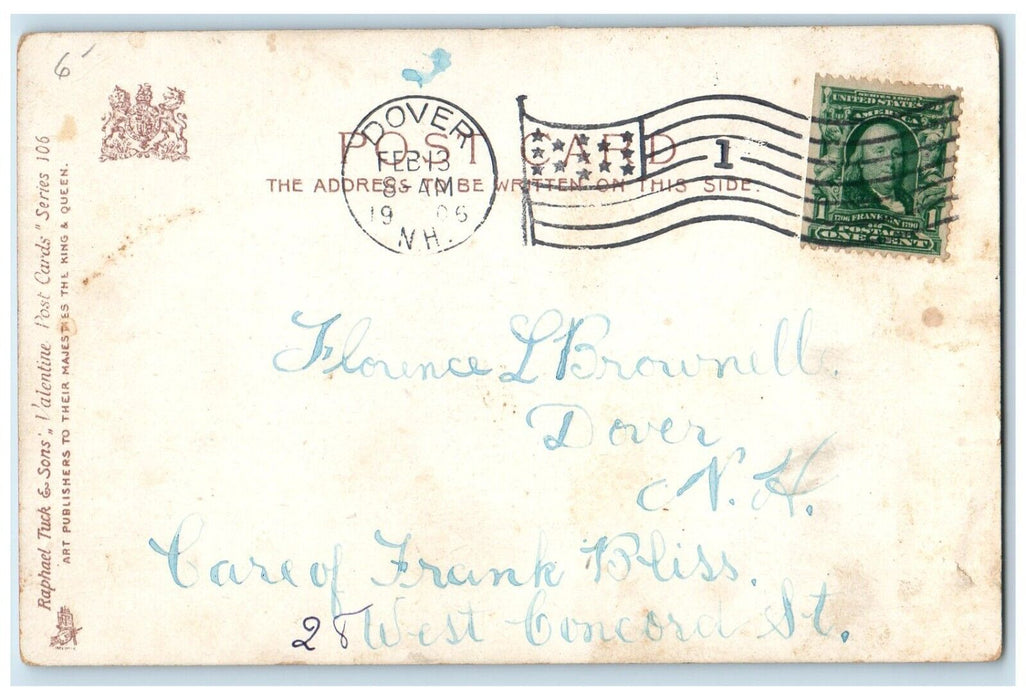 6
POST CARD
THE ADDRESS TO BE WRITTEN ON THIS SIDE.
DOVER
FEB 13
8-AM
1906
N.H.
1
SERIES 1902
UNITED STATES
AMERICA
1 1706 FRANKLIN 1790 1
POSTAGE
ONE CENT
Florence L Brownell.
Dover
N. H.
Care of Frank Bliss.
28 West Concord St.
Raphael Tuck & Sons' „Valentine Post Cards" Series 106
ART PUBLISHERS TO THEIR MAJESTIES THE KING & QUEEN.